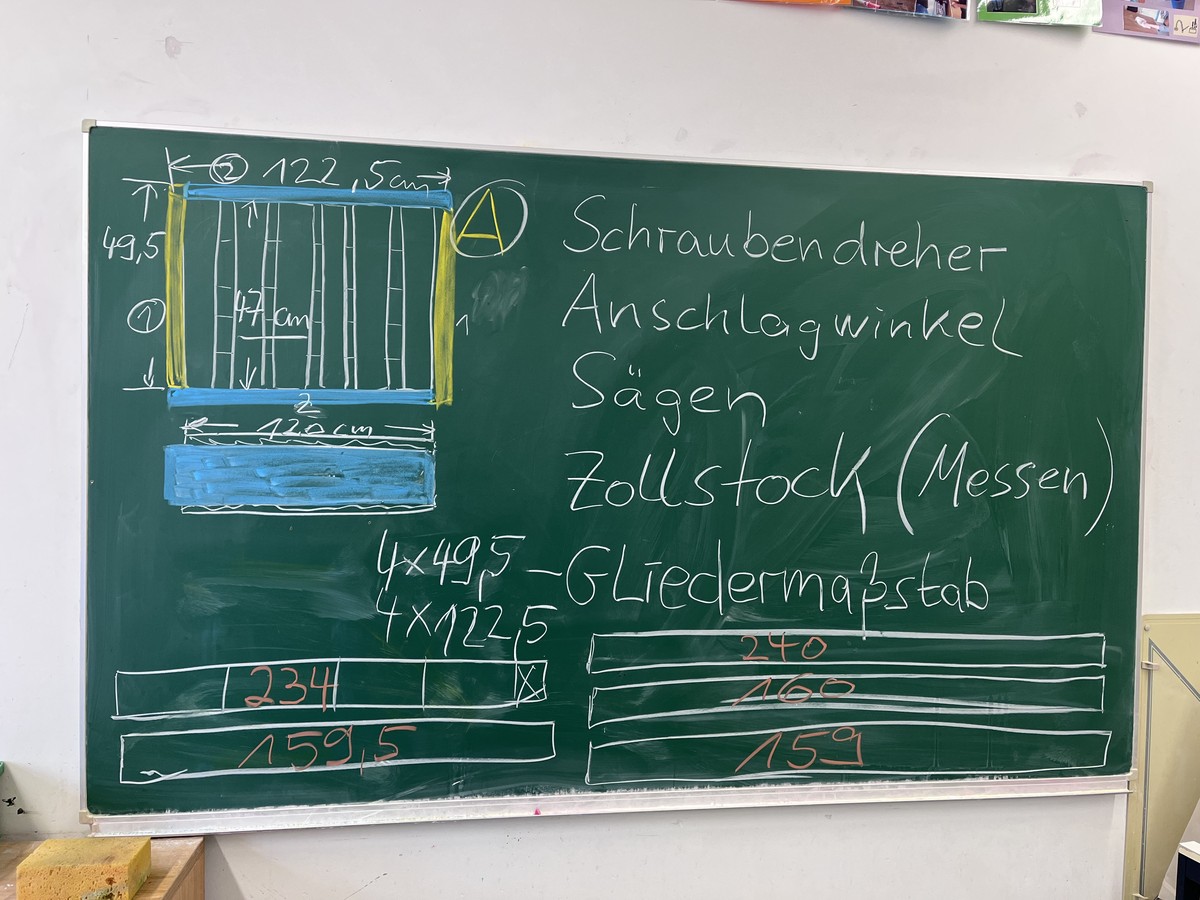 ② 122,5cm
A
49,5
①
47 cm
1
2
120 cm
Schraubendreher
Anschlagwinkel
Sägen
Zollstock (Messen)
4×49,5 – Gliedermaßstab
4×122,5
234 X
159,5
240
160
159